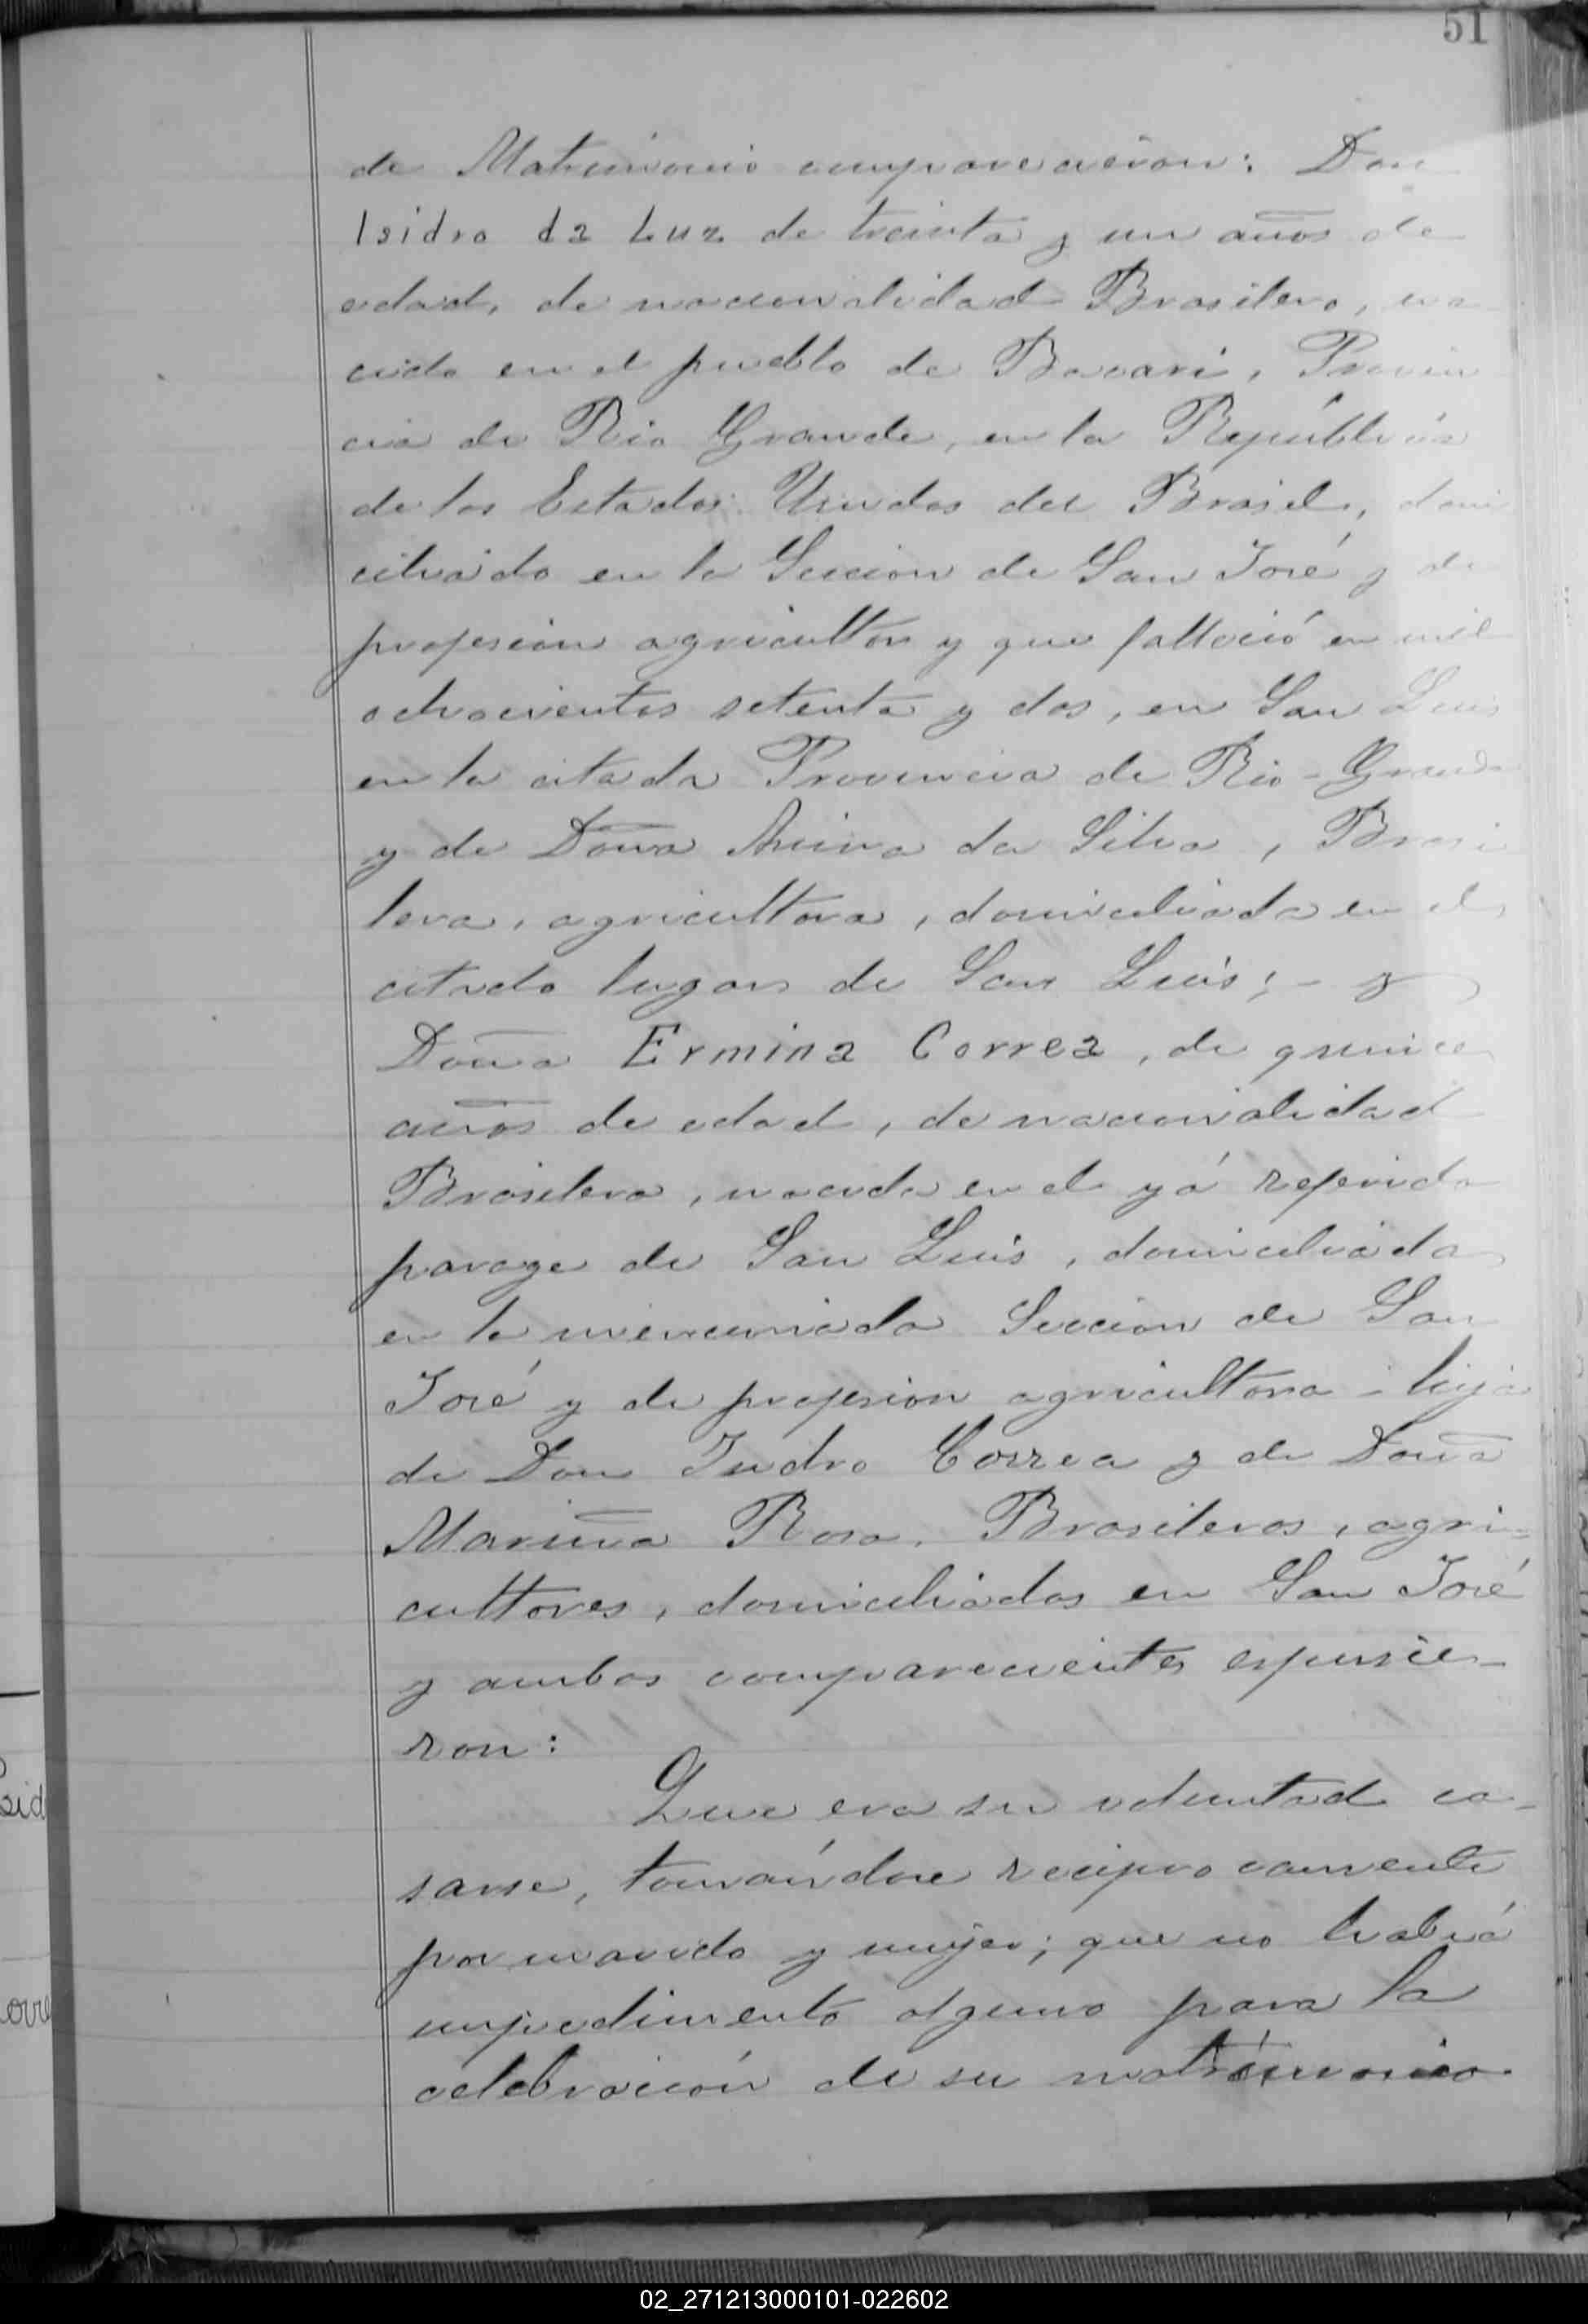 51
de Matrimonio comparecieron: Don
Isidro da Luz de treinta y un años de
edad, de nacionalidad Brasilera, na-
cido en el pueblo de Bacari, Provin-
cia de Rio Grande, en la República
de los Estados Unidos del Brasil, domi
ciliado en la Seccion de San José y de
profesion agricultor y que falleció en mil
ochocientos setenta y dos, en San Luis
en la citada Provincia de Rio-Grande
y de Doña da Silva, Brasi
lera, agricultora, domiciliada en el
citado lugar de San Luis; - y
Doña Ermina Correa, de quince
años de edad, de nacionalidad
Brasilera, nacida en el yá referido
parage de San Luis, domiciliada
en la mencionada Seccion de San
José y de profesion agricultora - hija
de Don Isidro Correa y de Doña
Mariña Rosa, Brasileros, agri-
cultores, domiciliados en San José
y ambos comparecientes espusie-
ron:
Que era su voluntad ca-
sarse, tomándose reciprocamente
por marido y mujer; que no habiá
impedimento alguno para la
celebración de su matrimonio
sid
orre
02_271213000101-022602